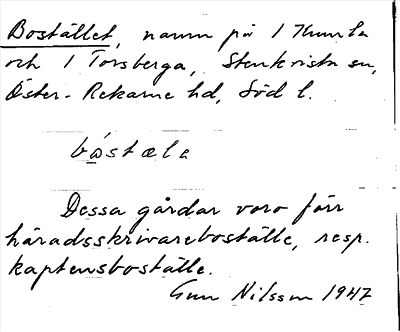 Bostället, namn på 1 Kumla
och 1 Torsberga, Stenkvista sn,
Öster-Rekarne hd, Söd l.
bo̲stæle
Dessa gårdar voro förr
häradsskrivareboställe, resp.
kaptensboställe.
Gun Nilsson 1947